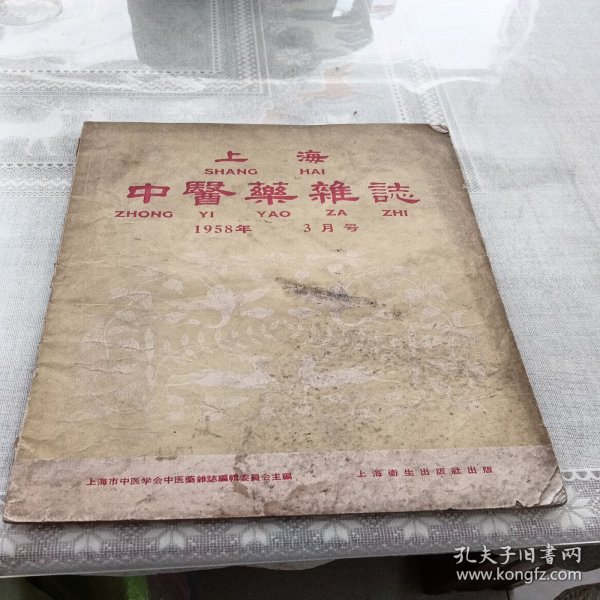 上海
SHANG HAI
中醫藥雜誌
ZHONG YI YAO ZA ZHI
1958年 3月号
上海市中医学会中医藥雜誌編輯委員会主編
上海衛生出版社出版
孔夫子旧书网
www.kongfz.com